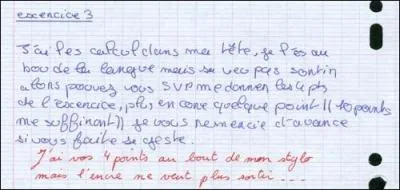 exercice 3
J'ai les calcul dans ma tête, je l'es au
bou de la langue mais sa veu pas sortir
alors pouvez vous SVP me donner les 4 pts
de l'exercice, plus encore quelque point (( 10 points
me suffiront)) je vous remercie d'avance
si vous faite se geste.
J'ai vos 4 points au bout de mon stylo
mais l'encre ne veut plus sortir ...